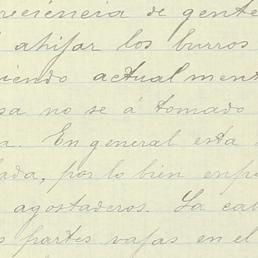 reciencia de gente
ahijar los burros
iendo actualment
sa no se á tomado
a. En general esta
lada, por lo bien emp
agostaderos. La cab
s partes vajas en el